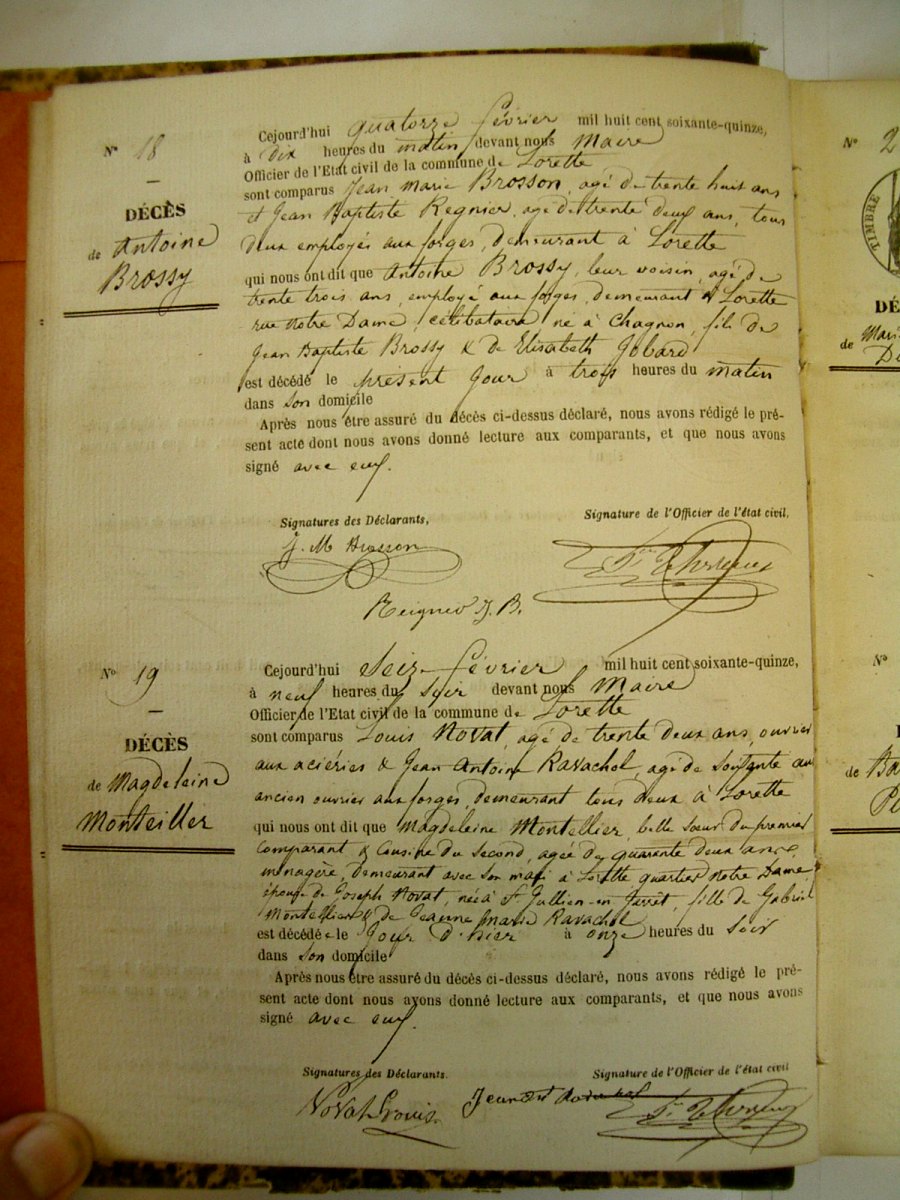 N° 18
DÉCÈS
de Antoine
Brossy
Cejourd'hui quatorze février mil huit cent soixante-quinze,
à dix heures du matin devant nous Maire
Officier de l'Etat civil de la commune de Lorette
sont comparus Jean Marie Brosson, agé de trente huit ans
et Jean Baptiste Regnier, agé de trente deux ans, tous
deux employés aux forges, demeurant à Lorette
qui nous ont dit que Antoine Brossy, leur voisin, agé de
trente trois ans, employé aux forges, demeurant à Lorette
rue Notre Dame, célibataire né à Chagnon, fils de
Jean Baptiste Brossy & de Elisabeth Jobard
est décédé le présent jour à trois heures du matin
dans son domicile
Après nous être assuré du décès ci-dessus déclaré, nous avons rédigé le pré-
sent acte dont nous avons donné lecture aux comparants, et que nous avons
signé avec eux.
Signatures des Déclarants,
Signature de l'Officier de l'état civil,
J. M Brosson
Reignier J. B.
N° 19
DÉCÈS
de Magdeleine
Monteiller
Cejourd'hui Seize février mil huit cent soixante-quinze,
à neuf heures du soir devant nous Maire
Officier de l'Etat civil de la commune de Lorette
sont comparus Louis Novat, agé de trente deux ans, ouvrier
aux aciéries & Jean Antoine Ravachol, agé de soixante ans
ancien ouvrier aux forges, demeurant tous deux à Lorette
qui nous ont dit que Magdeleine Montellier, belle soeur du premier
comparant & cousine du second, agée de quarante deux ans,
ménagère, demeurant avec son mari à Lorette quartier Notre Dame,
épouse de Joseph Novat, née à St Jullien-en-Jarrêt, fille de Gabriel
Montellier & de Jeanne Marie Ravachol
est décédée le jour d'hier à onze heures du soir
dans son domicile
Après nous être assuré du décès ci-dessus déclaré, nous avons rédigé le pré-
sent acte dont nous avons donné lecture aux comparants, et que nous avons
signé avec eux.
Signatures des Déclarants.
Signature de l'Officier de l'état civil
Novat Louis
N° 2
TIMBRE
DÉ
de Mari
N°
de